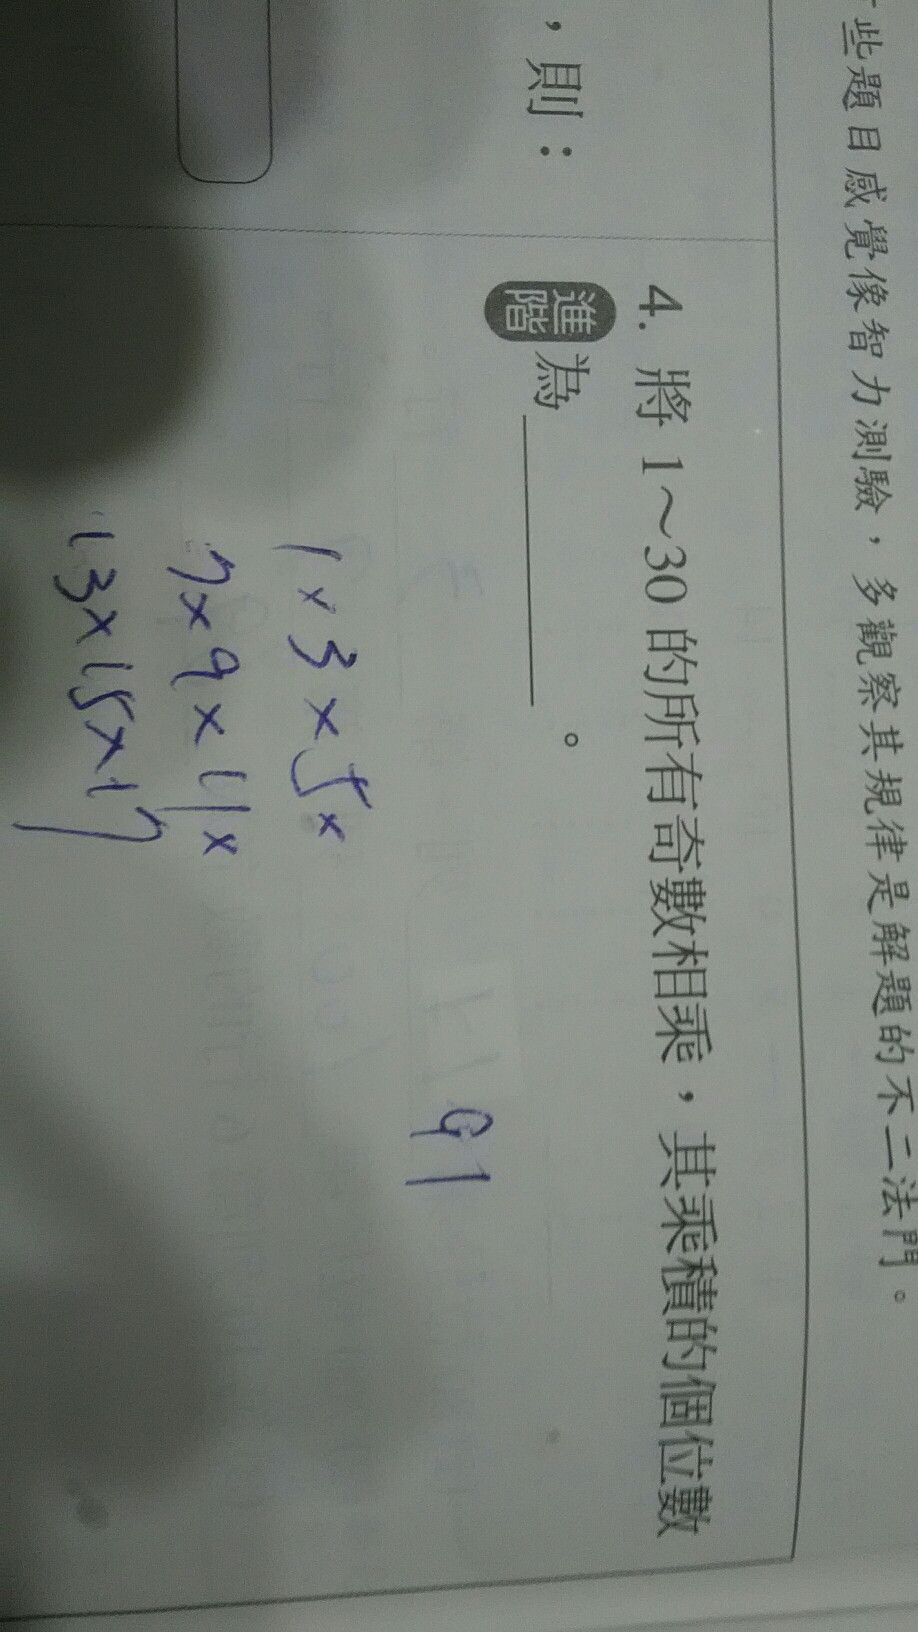 些題目感覺像智力測驗，多觀察其規律是解題的不二法門。
，則：
4. 將 1～30 的所有奇數相乘，其乘積的個位數
進階 為＿＿＿＿。
91
1×3×5×
7×9×11×
13×15×17